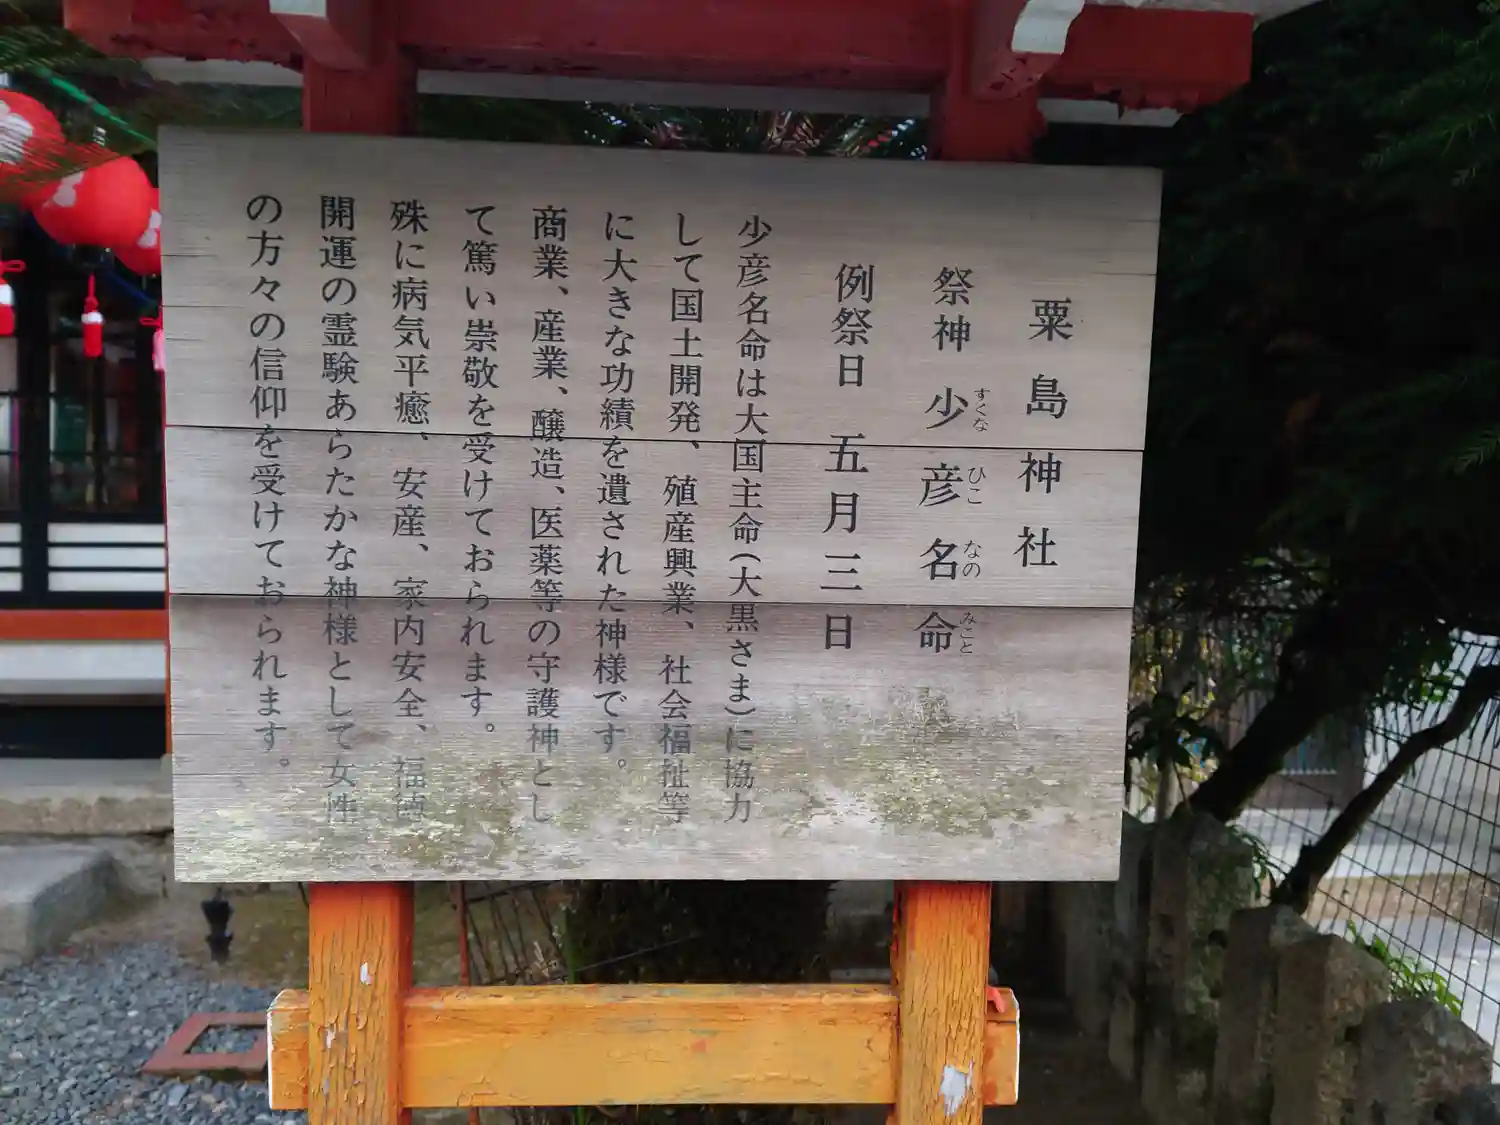 粟島神社
祭神 少彦名命
すくな ひこ なの みこと
例祭日 五月三日
少彦名命は大国主命(大黒さま)に協力
して国土開発、殖産興業、社会福祉等
に大きな功績を遺された神様です。
商業、産業、醸造、医薬等の守護神とし
て篤い崇敬を受けておられます。
殊に病気平癒、安産、家内安全、福徳
開運の霊験あらたかな神様として女性
の方々の信仰を受けておられます。